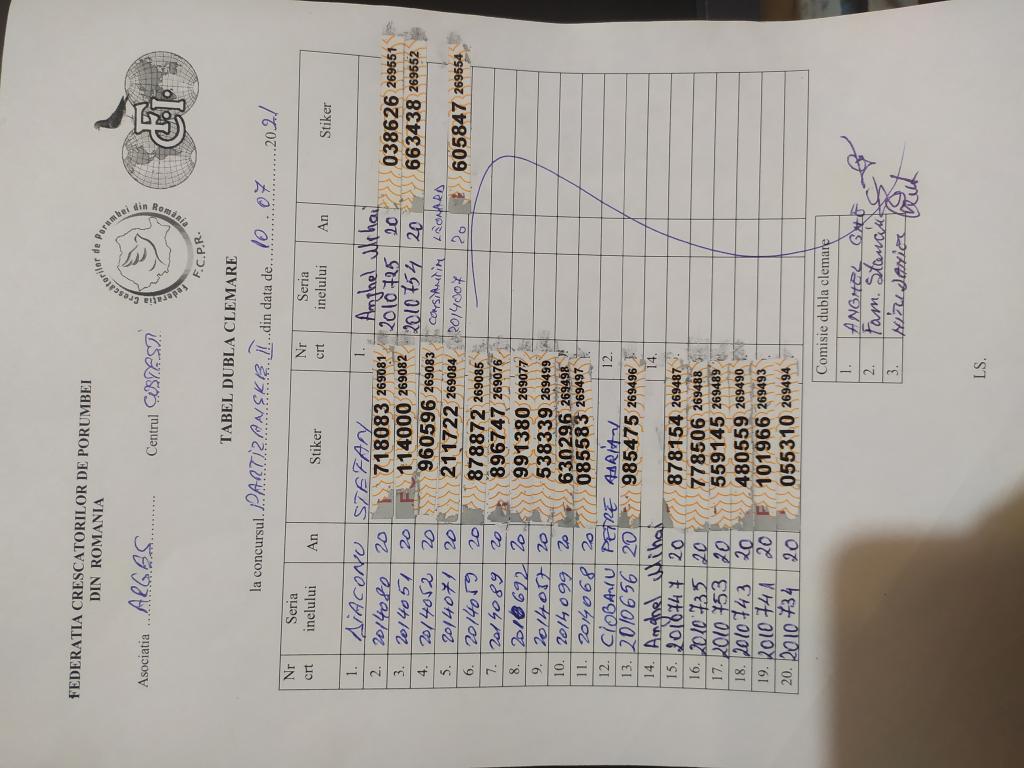 FEDERATIA CRESCATORILOR DE PORUMBEI
DIN ROMANIA
Federatia Crescatorilor de Porumbei din România
F.C.P.R.
Asociatia ARGES Centrul
TABEL DUBLA CLEMARE
la concursul PARTIZANSKE II din data de 10.07.2021
Nr crt Seria inelului An Stiker Nr crt Seria inelului An Stiker
1. DIACONU STEFAN 1. Anghel Mihai
2. 2014080 20 718083 269081 2010775 20 038626 269551
3. 2014051 20 114000 269082 2010754 20 663438 269552
4. 2014052 20 960596 269083 LEONARD
5. 2014071 20 211722 269084 2014007 20 605847 269554
6. 2014059 20 878872 269085
7. 2014089 20 896747 269076
8. 20 991380 269077
9. 2014057 20 538339 269499
10. 2014099 20 630296 269498
11. 2014068 20 085583 269497
12. CIOBANU PETRE ADRIAN 12.
13. 2010656 20 985475 269496
14. Anghel Mihai 14.
15. 2010747 20 878154 269487
16. 2010735 20 778506 269488
17. 2010753 20 559145 269489
18. 2010743 20 480559 269490
19. 2010741 20 101966 269493
20. 2010734 20 055310 269494
Comisie dubla clemare
1. ANGHEL
2. Fam.
3.
LS.